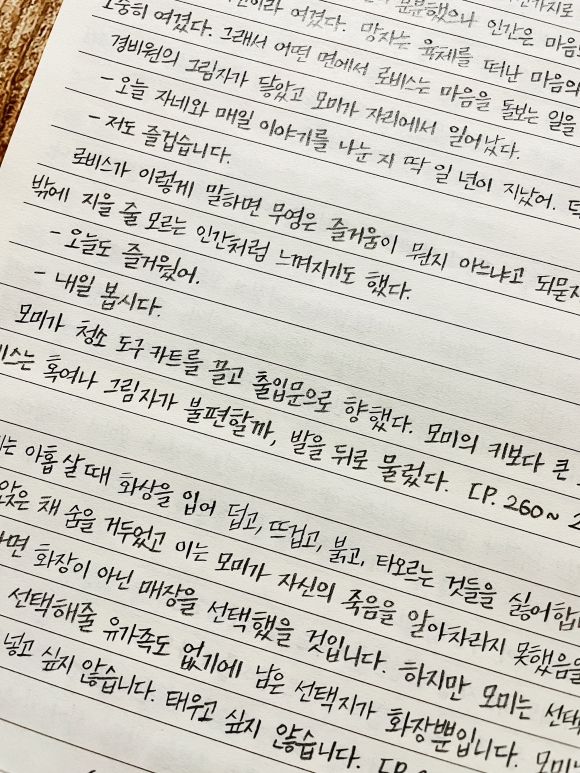 분분했으나 인간은 마음
소중히 여겼다. 그래서 어떤 면에서 로비스는 마음을 돌보는 일을
여겼다. 망자는 육체를 떠난 마음의
경비원의 그림자가 닿았고 모미가 자리에서 일어났다.
- 오늘 자네와 매일 이야기를 나눈 지 딱 일 년이 지났어.
- 저도 즐겁습니다.
로비스가 이렇게 말하면 무영은 즐거움이 뭔지 아느냐고 되묻지
밖에 지을 줄 모르는 인간처럼 느껴지기도 했다.
- 오늘도 즐거웠어.
- 내일 봅시다.
모미가 청소 도구 카트를 끌고 출입문으로 향했다. 모미의 키보다 큰
비스는 혹여나 그림자가 불편할까, 발을 뒤로 물렀다. [P. 260 ~ 2
는 아홉 살 때 화상을 입어 덥고, 뜨겁고, 붉고, 타오르는 것들을 싫어합니
앉은 채 숨을 거두었고 이는 모미가 자신의 죽음을 알아차리지 못했음을
면 화장이 아닌 매장을 선택했을 것입니다. 하지만 모미는 선택
선택해줄 유가족도 없기에 남은 선택지가 화장뿐입니다. 모미
넣고 싶지 않습니다. 태우고 싶지 않습니다. [P.